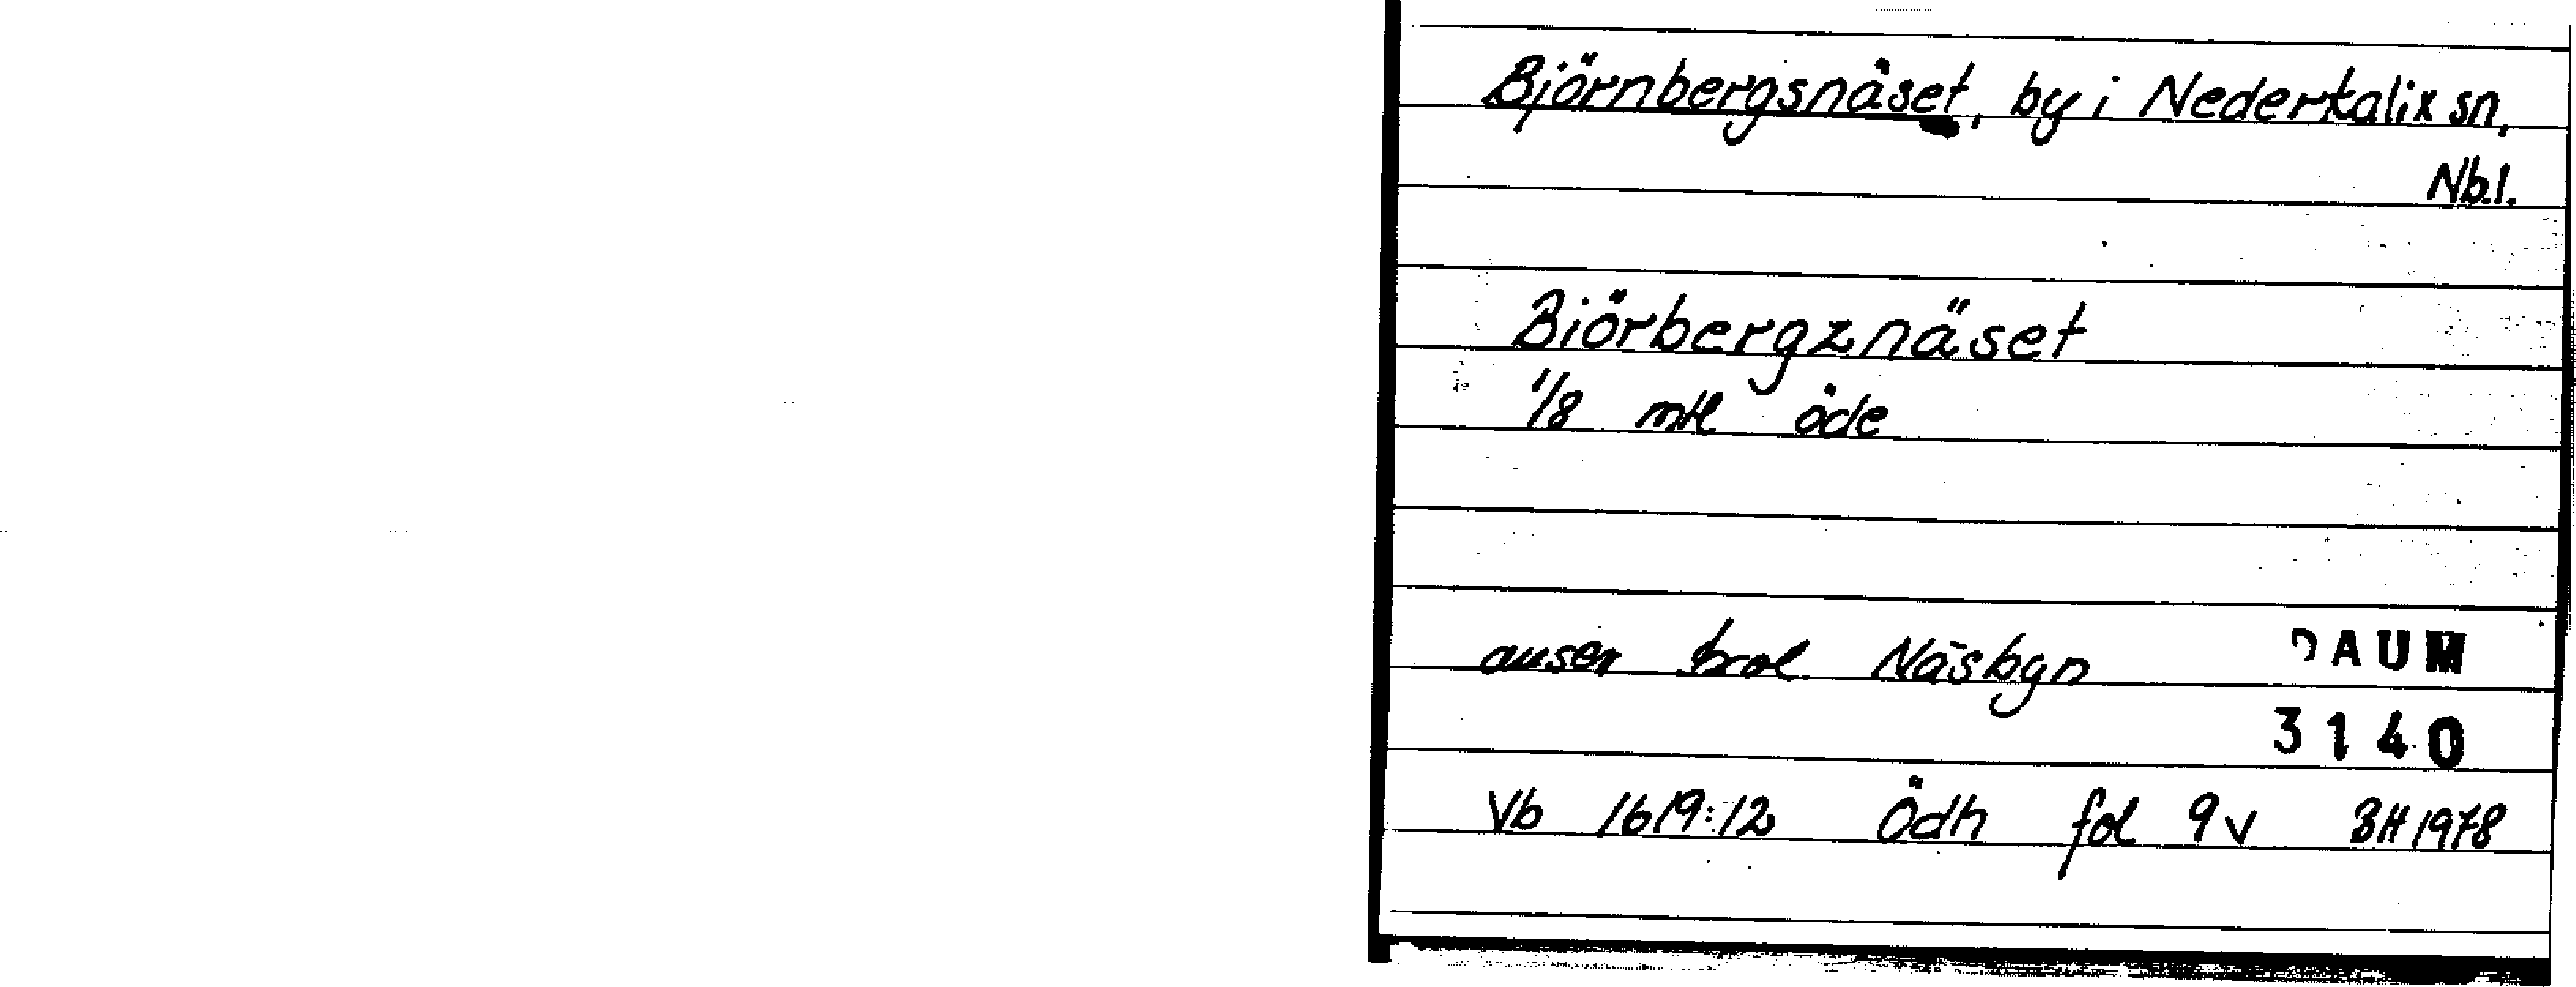 Björnbergsnäset, by i Nederkalix sn,
Nb.l.
Biörbergznäset
1/8 mtl öde
anser Näsbyn
DAUM
3140
Vb 1619:12 Ödh fol 9v BH 1978